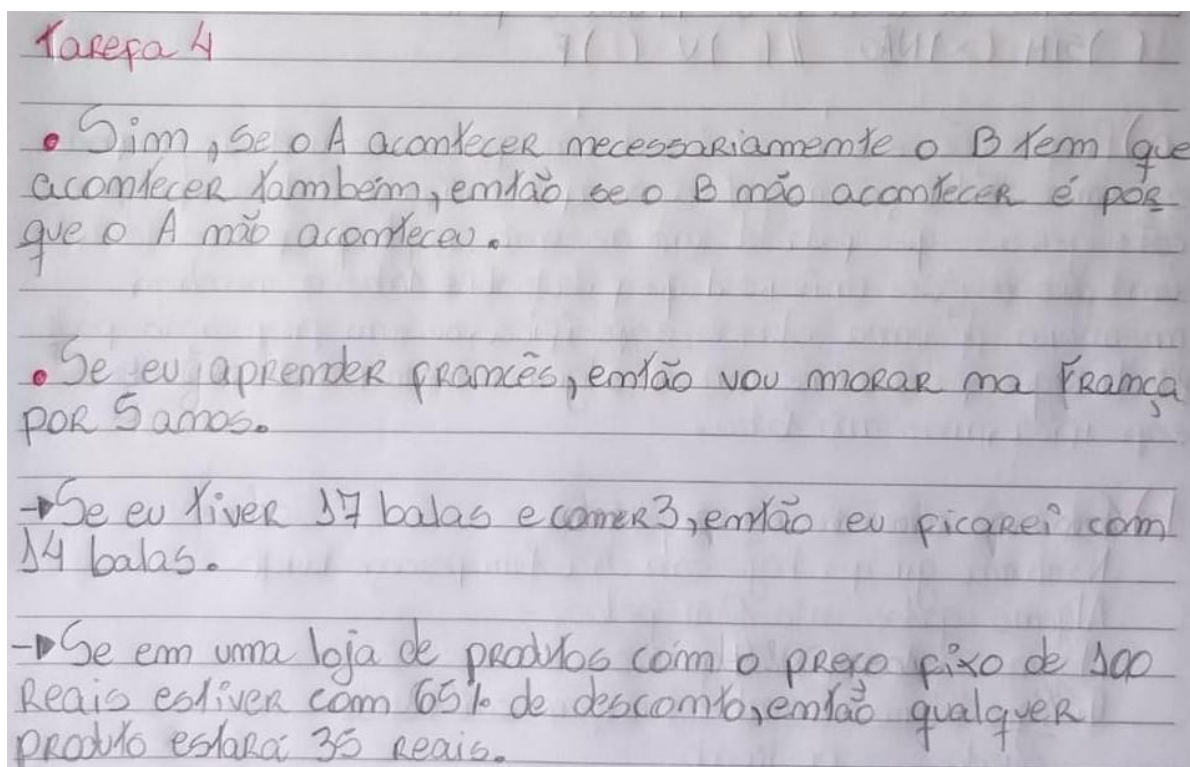 Tarefa 4
• Sim, se o A acontecer necessariamente o B tem que
acontecer também, então se o B não acontecer é por
que o A não aconteceu.
• Se eu aprender francês, então vou morar na França
por 5 anos.
→ Se eu tiver 17 balas e comer 3, então eu ficarei com
14 balas.
→ Se em uma loja de produtos com o preço fixo de 100
Reais estiver com 65% de desconto, então qualquer
produto estará 35 Reais.